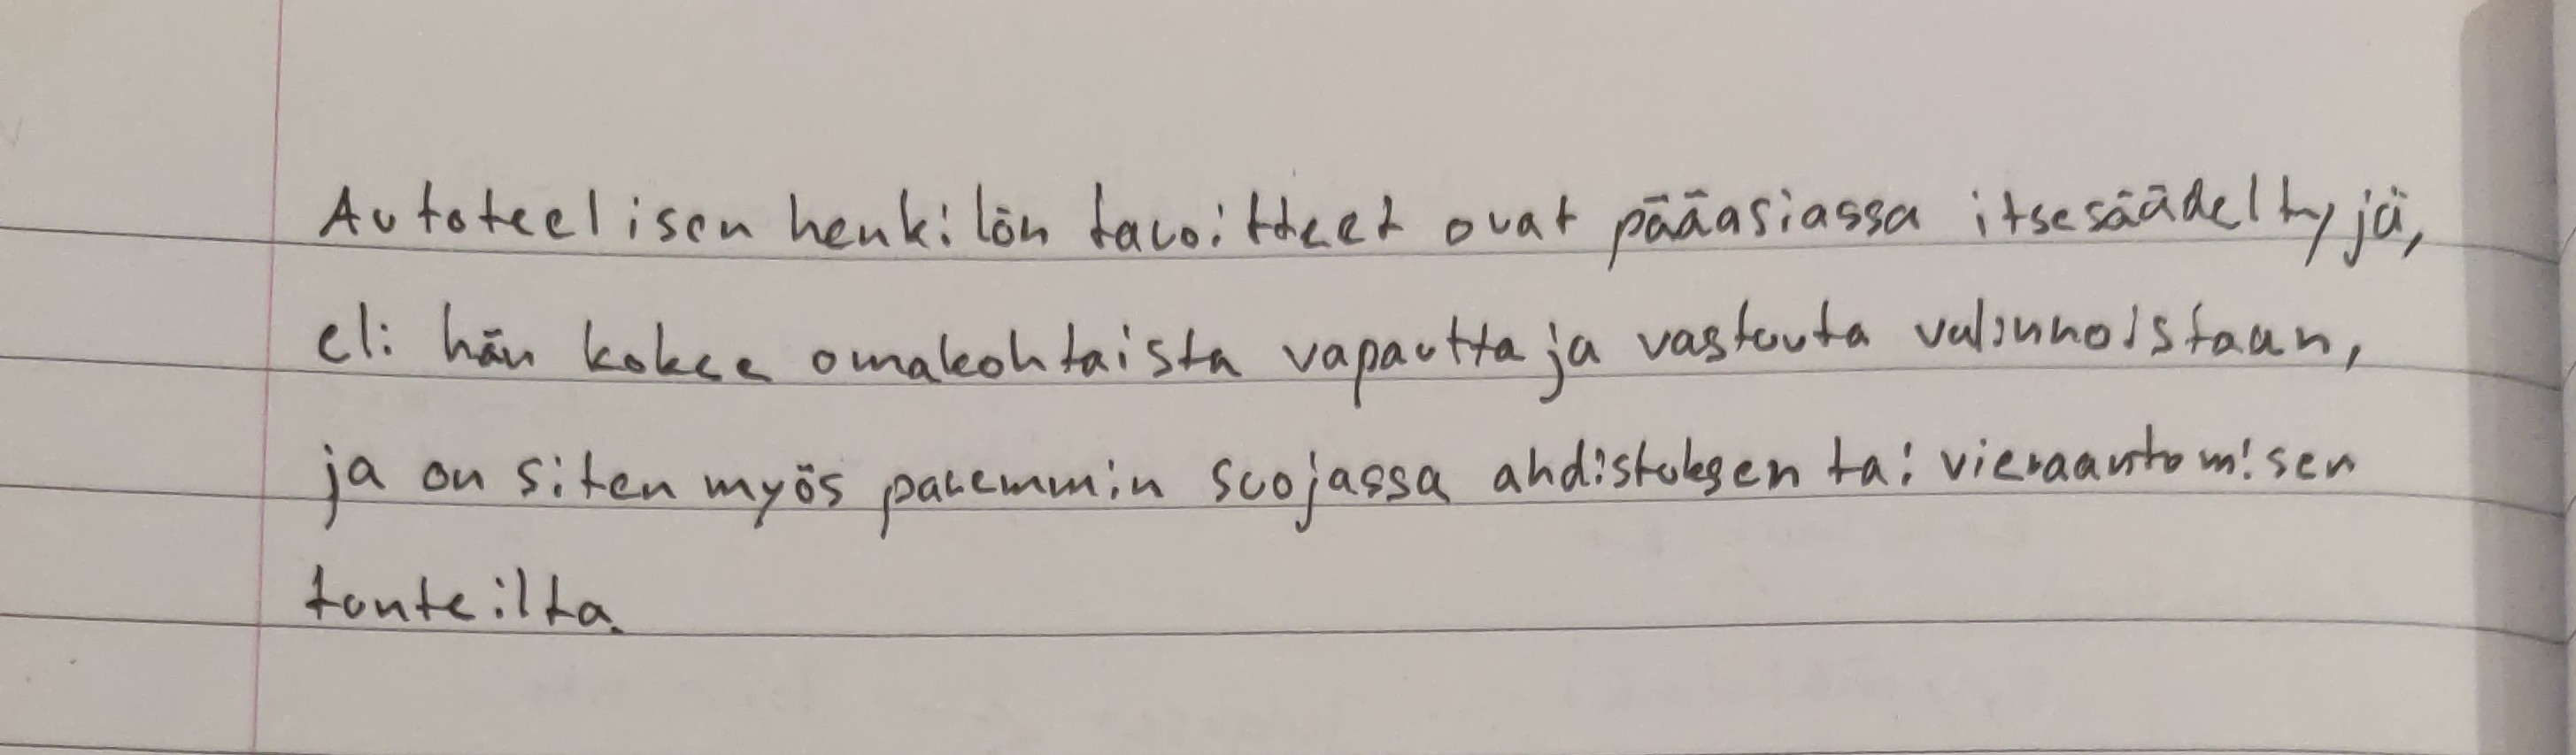 Autoteelisen henkilön tavoitteet ovat pääasiassa itsesäädeltyjä,
eli hän kokee omakohtaista vapautta ja vastuuta valinnoistaan,
ja on siten myös paremmin suojassa ahdistuksen tai vieraantumisen
tunteilta.